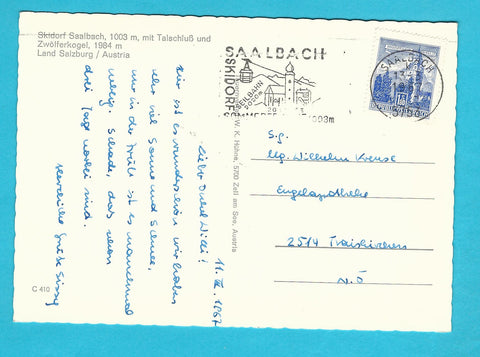 Skidorf Saalbach, 1003 m, mit Talschluß und
Zwölferkogel, 1984 m
Land Salzburg / Austria
SAALBACH
SKIDORF
SEILBAHN
2000m
1003m
SAALBACH
5753
W. K. Hühne, 5700 Zell am See, Austria
C 410
11. III. 1967
Lieber Onkel Willi!
Hier ist es wunderschön wir haben
sehr viel Sonne und Schnee,
nur in der Früh ist es manchmal
neblig. Schade, daß schon
drei Tage vorbei sind.
Herzliche Grüße Sissy
S.g.
Mg. Wilhelm Kreuse
Engelapotheke
2514 Traiskirchen
N.Ö